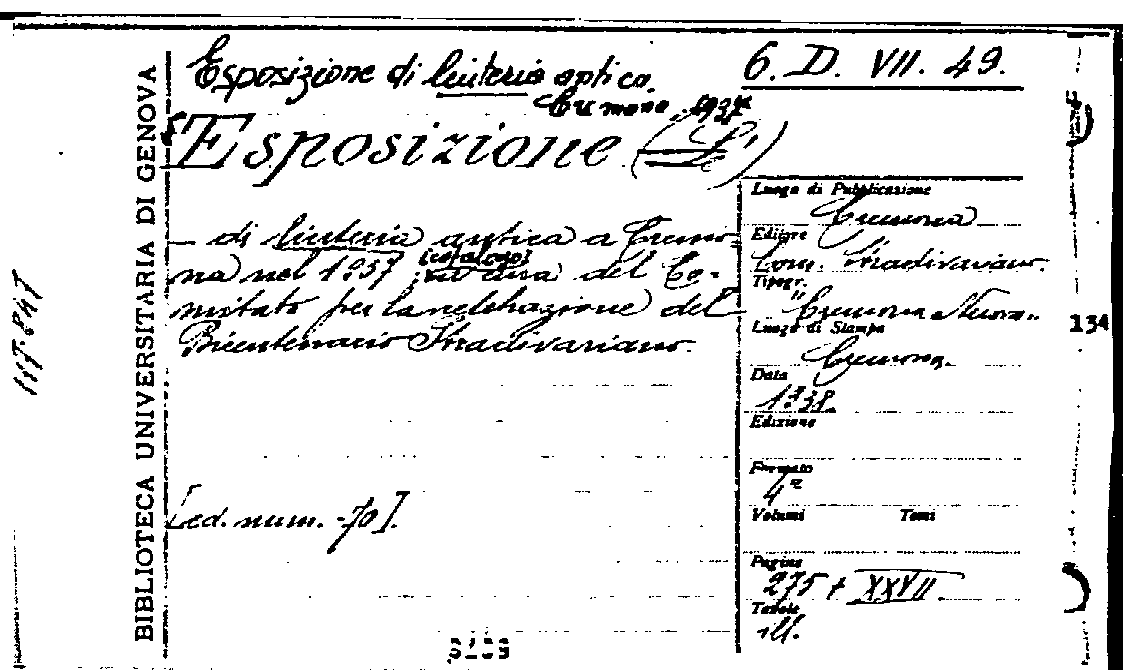 Esposizione di liuteria
6. D. VII. 49.
Cremona 1937
Esposizione (L')
— di liuteria antica a Cremo-
na nel 1937 (catalogo) a cura del Co-
mitato per la celebrazione del
Bicentenario Stradivariano.
[ed. num. -70].
Luogo di Pubblicazione
Cremona
Editore
Com. Stradivariano.
Tipogr.
"Cremona Nuova"
Luogo di Stampa
Cremona.
Data
1938.
Edizione
Formato
4°
Volumi Tomi
Pagine
275 + XXVII
Tavole
ill.
134
BIBLIOTECA UNIVERSITARIA DI GENOVA